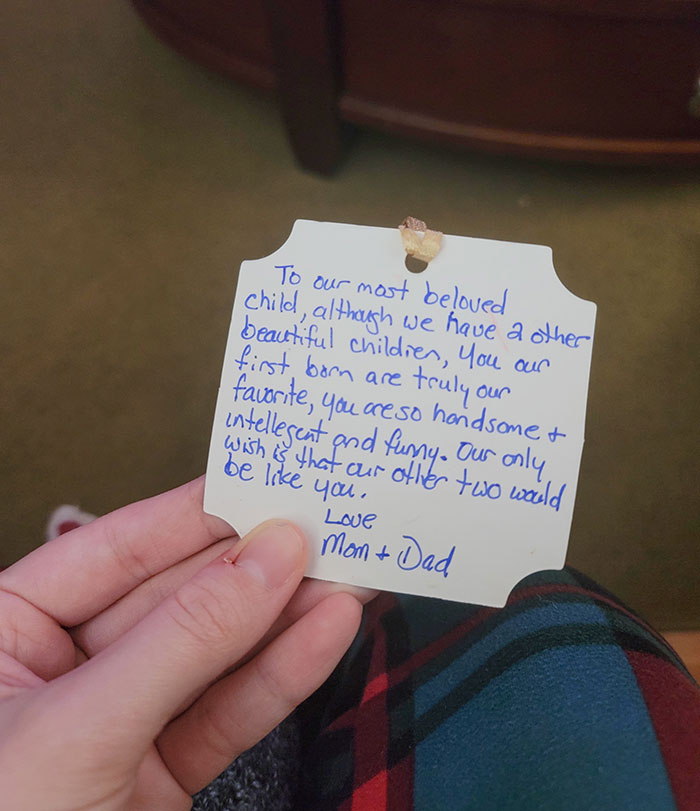 To our most beloved
child, although we have 2 other
beautiful children, you our
first born are truly our
favorite, you are so handsome +
intellegent and funny. Our only
wish is that our other two would
be like you.
Love
Mom + Dad